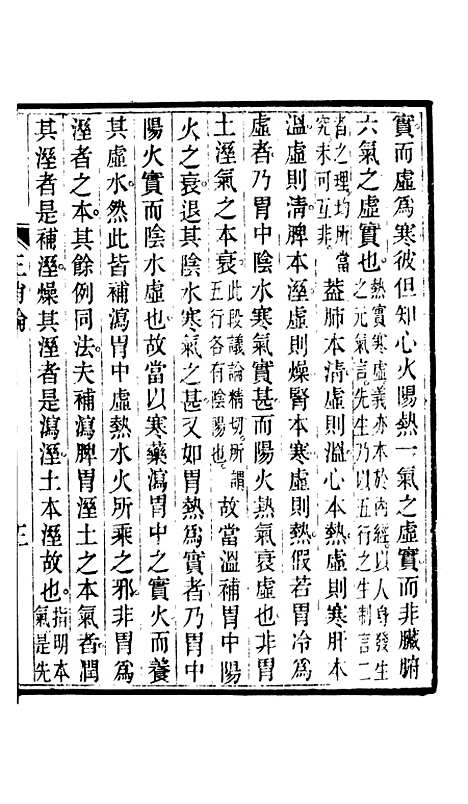 實而虛爲寒彼但知心火陽熱一氣之虛實而非臟腑
六氣之虛實也熱實寒虛義亦本於內經以人身發生
之元氣言先生乃以五行之生制言二
者之理均所當
究未可互非蓋肺本清虛則溫心本熱虛則寒肝本
溫虛則清脾本溼虛則燥腎本寒虛則熱假若胃冷爲
虛者乃胃中陰水寒氣實甚而陽火熱氣衰虛也非胃
土溼氣之本衰此段議論精切所謂
五行各有陰陽也故當溫補胃中陽
火之衰退其陰水寒氣之甚又如胃熱爲實者乃胃中
陽火實而陰水虛也故當以寒藥瀉胃中之實火而養
其虛水然此皆補瀉胃中虛熱水火所乘之邪非胃爲
溼者之本其餘例同法夫補瀉脾胃溼土之本氣者潤
其溼者是補溼燥其溼者是瀉溼土本溼故也指明本
氣是先
三消論
三